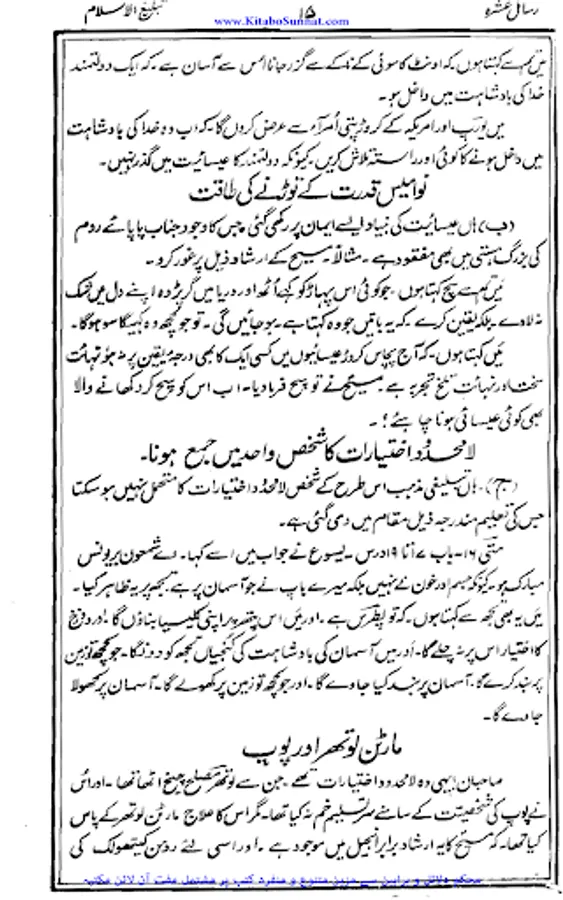 رسائل عشرہ ۱۵ تبلیغ الاسلام
www.KitaboSunnat.com
میں تم سے کہتا ہوں۔ کہ اونٹ کا سوئی کے ناکے سے گزر جانا اس سے آسان ہے۔ کہ ایک دولتمند
خدا کی بادشاہت میں داخل ہو۔
میں یورپ اور امریکہ کے کروڑ پتی اُمرآء سے عرض کروں گا۔ کہ اب وہ خدا کی بادشاہت
میں داخل ہونے کا کوئی اور راستہ تلاش کریں۔ کیونکہ دولتمند کا عیسائیت میں گذر نہیں۔
نوامیس قدرت کے توڑنے کی طاقت
(ب) ہاں عیسائیت کی بنیاد ایسے ایمان پر رکھی گئی جس کا وجود جناب پاپائے روم
کی بزرگ ہستی میں بھی مفقود ہے۔ مثلاً۔ مسیح کے ارشاد ذیل پر غور کرو۔
میں تم سے سچ کہتا ہوں۔ جو کوئی اس پہاڑ کو کہے اُٹھ اور دریا میں گر پڑ وہ اپنے دل میں شک
نہ لاوے۔ بلکہ یقین کرے۔ کہ یہ باتیں جو وہ کہتا ہے۔ ہو جائیں گی۔ تو جو کچھ وہ کہیگا سو ہو گا۔
میں کہتا ہوں۔ کہ آج پچاس کروڑ عیسائیوں میں کسی ایک کا بھی درجہ یقین پر نہ ہونا نہائت
سخت اور نہائت تلخ تجربہ ہے۔ مسیح نے تو سچ فرما دیا۔ اب اس کو سچ کر دکھانے والا
بھی کوئی عیسائی ہونا چاہئے؟۔
لامحدود اختیارات کا شخص واحد میں جمع ہونا۔
(ج)۔ ہاں تبلیغی مذہب اس طرح کے شخص لامحدود اختیارات کا متحمل نہیں ہو سکتا
جس کی تعلیم مندرجہ ذیل مقام میں دی گئی ہے۔
متی ۱۶۔ باب ۱۷ تا ۱۹ درس۔ یسوع نے جواب میں اسے کہا۔ اے شمعون بر یونس
مبارک ہو۔ کیونکہ جسم اور خون نے نہیں بلکہ میرے باپ نے جو آسمان پر ہے تجھ پر یہ ظاہر کیا۔
میں یہ بھی تجھ سے کہتا ہوں۔ کہ تو پطرس ہے۔ اور میں اس پتھر پر اپنی کلیسیا بناؤں گا۔ اور دوزخ
کا اختیار اس پر نہ چلے گا۔ اور میں آسمان کی بادشاہت کی کنجیاں تجھ کو دونگا۔ جو کچھ تو زمین
پر بند کرے گا۔ آسمان پر بند کیا جاوے گا۔ اور جو کچھ تو زمین پر کھولے گا۔ آسمان پر کھولا
جاوے گا۔
مارٹن لوتھر اور پوپ
صاحبان! یہی وہ لامحدود اختیارات تھے۔ جن سے لوتھر مصلح چیخ اٹھا تھا۔ اور اس
نے پوپ کی شخصیت کے سامنے سر تسلیم خم نہ کیا تھا۔ مگر اس کا علاج مارٹن لوتھر کے پاس
کیا تھا۔ کہ مسیح کا یہ ارشاد برابر انجیل میں موجود ہے۔ اور اسی لئے رومن کیتھولک کی
محکم دلائل و براہین سے مزین متنوع و منفرد کتب پر مشتمل مفت آن لائن مکتبہ